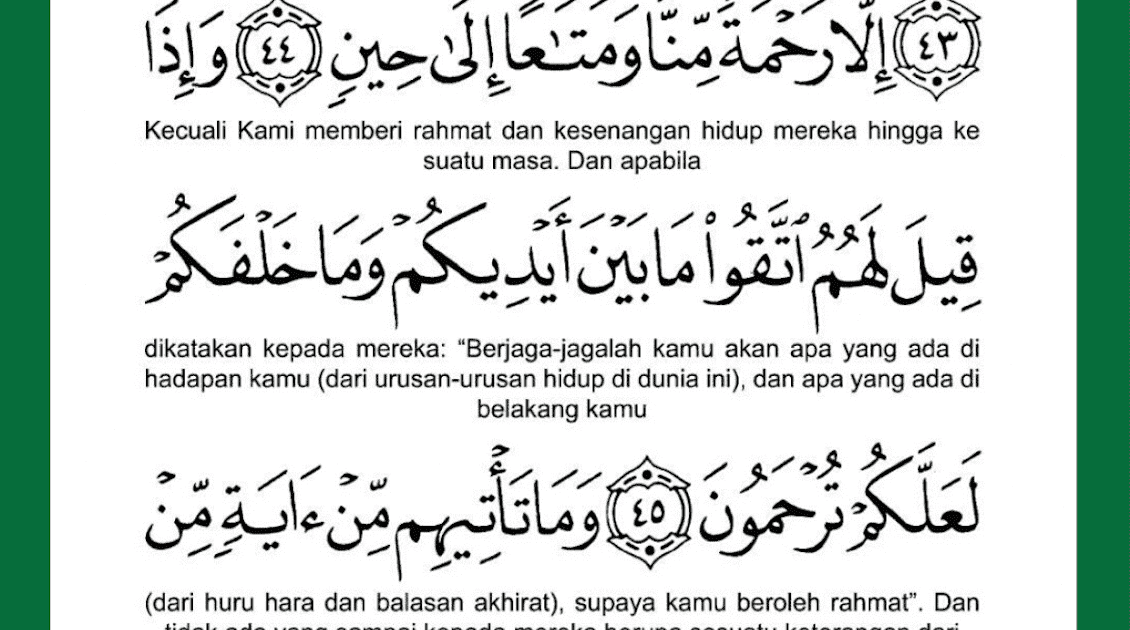 ٤٣ إِلَّا رَحْمَةً مِّنَّا وَمَتَٰعًا إِلَىٰ حِينٍ ٤٤ وَإِذَا
Kecuali Kami memberi rahmat dan kesenangan hidup mereka hingga ke
suatu masa. Dan apabila
قِيلَ لَهُمُ ٱتَّقُوا۟ مَا بَيْنَ أَيْدِيكُمْ وَمَا خَلْفَكُمْ
dikatakan kepada mereka: “Berjaga-jagalah kamu akan apa yang ada di
hadapan kamu (dari urusan-urusan hidup di dunia ini), dan apa yang ada di
belakang kamu
لَعَلَّكُمْ تُرْحَمُونَ ٤٥ وَمَا تَأْتِيهِم مِّنْ ءَايَةٍ مِّنْ
(dari huru hara dan balasan akhirat), supaya kamu beroleh rahmat”. Dan
tidak ada yang sampai kepada mereka berupa sesuatu keterangan dari